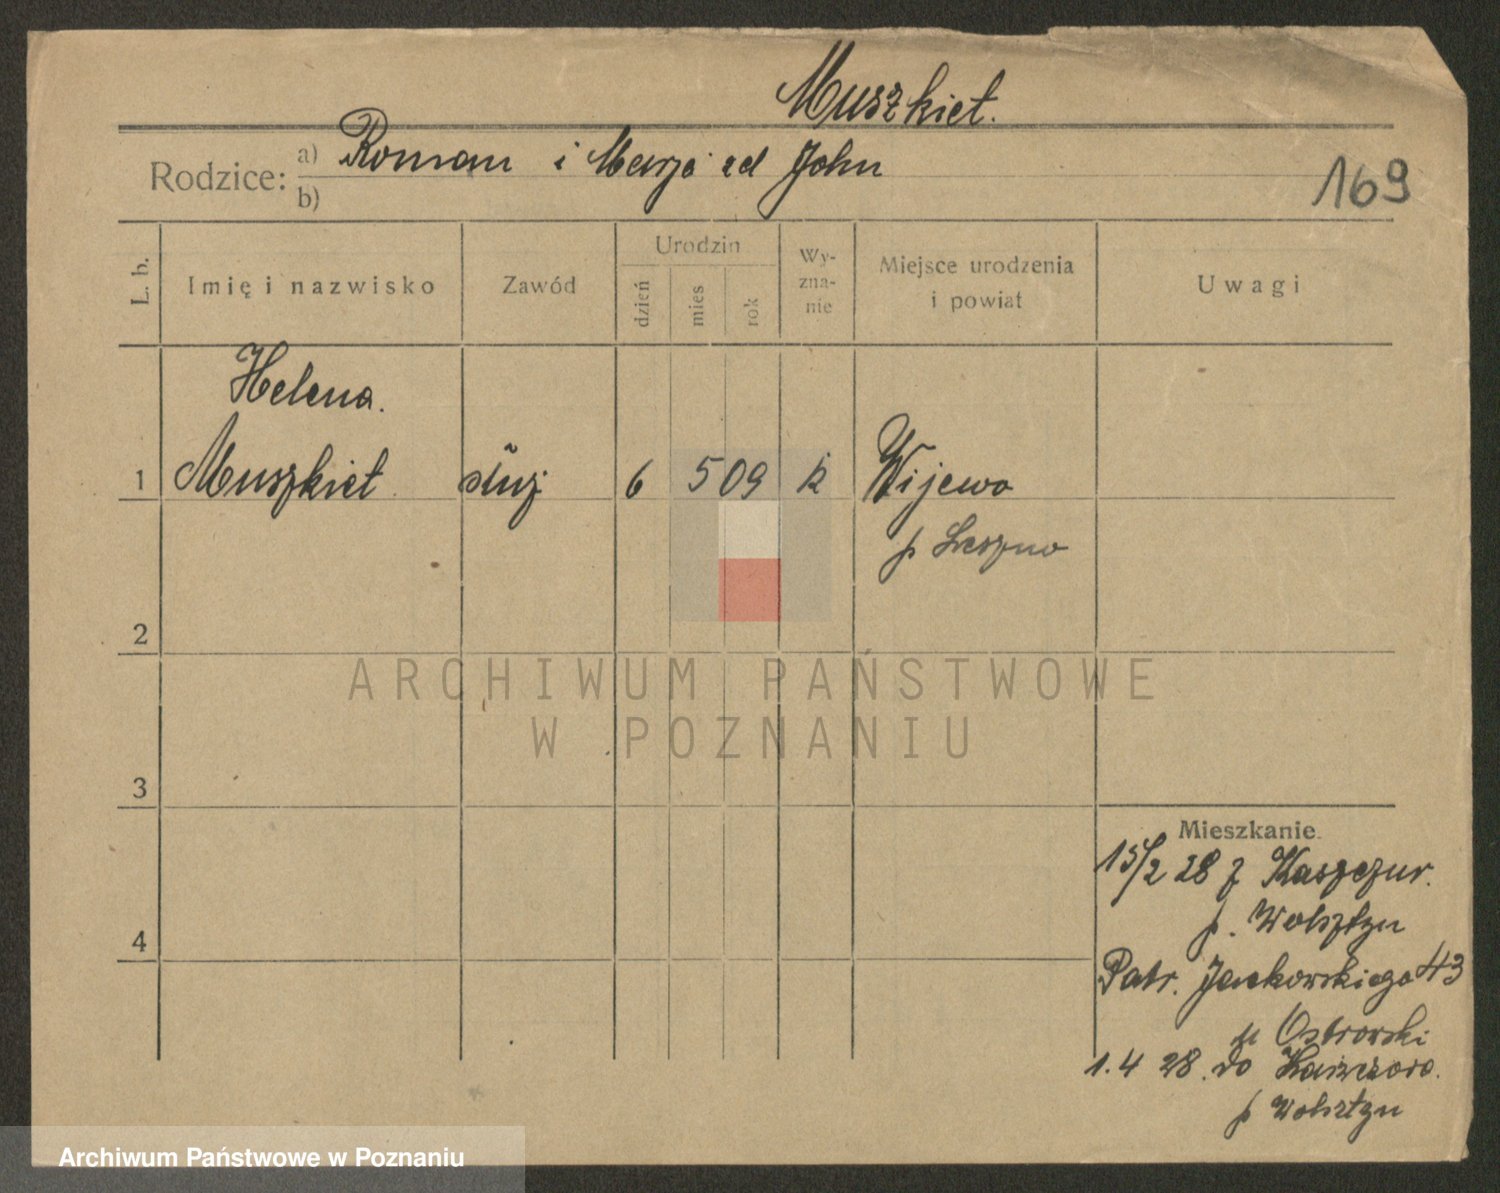 Muszkiet.
Rodzice: a) Roman i Marja zd John
b)
169
L. b.
Imię i nazwisko
Zawód
Urodzin
dzień
mies
rok
Wy-
zna-
nie
Miejsce urodzenia
i powiat
Uwagi
Helena.
1 Muszkiet służ 6 5 09 k Wijewo
p Leszno
2
3
4
Mieszkanie.
15/2 28 z Kaszczur.
p. Wolsztyn
Patr. Jackowskiego 43
u Ostrowski
1.4 28. do Kaszczoro.
p Wolsztyn
ARCHIWUM PAŃSTWOWE
W POZNANIU
Archiwum Państwowe w Poznaniu